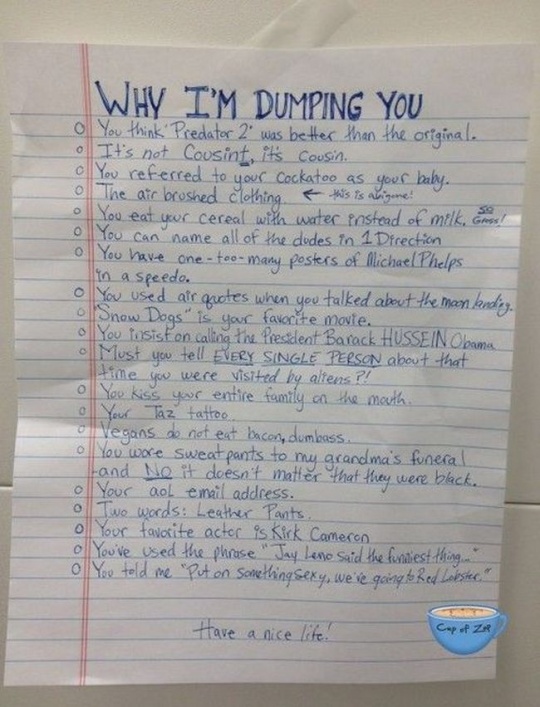 WHY I'M DUMPING YOU
You think 'Predator 2' was better than the original.
It's not Cousint, it's cousin.
You referred to your cockatoo as your baby.
The air brushed clothing. ← this is a biggone!
You eat your cereal with water instead of milk. SO Gross!
You can name all of the dudes in 1 Direction
You have one-too-many posters of Michael Phelps
in a speedo.
You used air quotes when you talked about the moon landing.
"Snow Dogs" is your favorite movie.
You insist on calling the President Barack HUSSEIN Obama
Must you tell EVERY SINGLE PERSON about that
time you were visited by aliens?!
You kiss your entire family on the mouth.
Your Taz tattoo
Vegans do not eat bacon, dumbass.
You wore sweatpants to my grandma's funeral
-and NO it doesn't matter that they were black.
Your aol email address.
Two words: Leather Pants.
Your favorite actor is Kirk Cameron
You've used the phrase "Jay Leno said the funniest thing..."
You told me "Put on something sexy, we're going to Red Lobster."
Have a nice life!
Cup of Zup